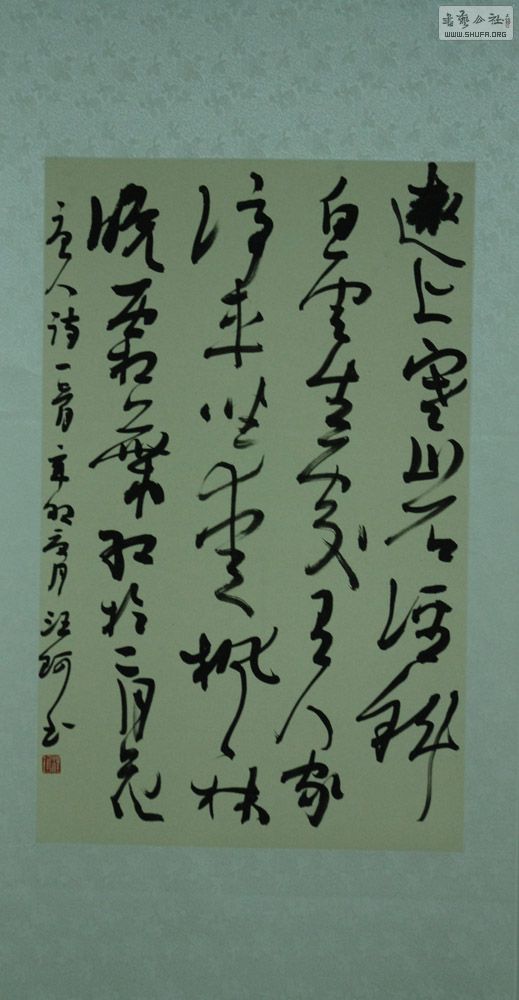 書藝公社
WWW.SHUFA.ORG
遠上寒山石徑斜
白雲生處有人家
停車坐愛楓林
晚霜葉紅於二月花
唐人詩一首辛卯月汪珂書